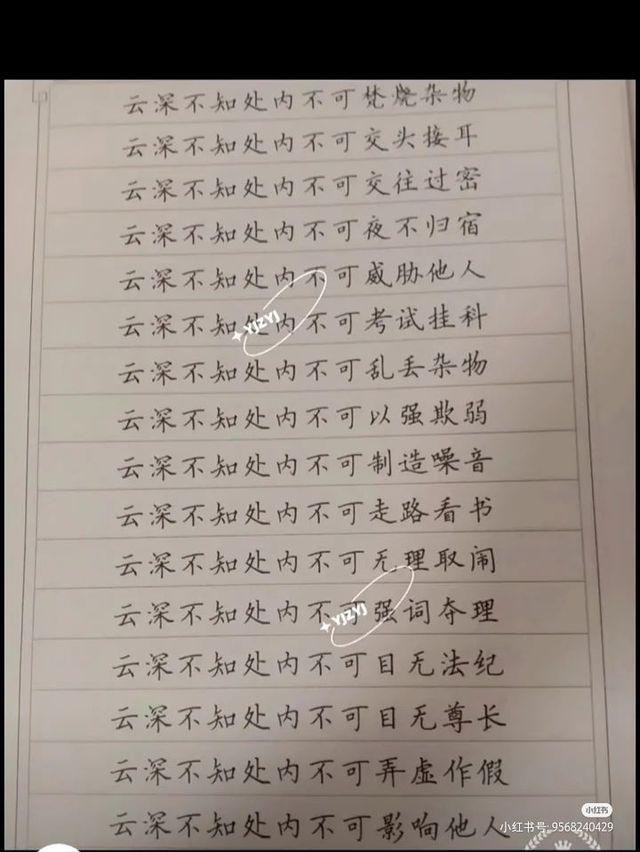 云深不知处内不可焚烧杂物
云深不知处内不可交头接耳
云深不知处内不可交往过密
云深不知处内不可夜不归宿
云深不知处内不可威胁他人
云深不知处内不可考试挂科
YJZYJ
云深不知处内不可乱丢杂物
云深不知处内不可以强欺弱
云深不知处内不可制造噪音
云深不知处内不可走路看书
云深不知处内不可无理取闹
云深不知处内不可强词夺理
YJZYJ
云深不知处内不可目无法纪
云深不知处内不可目无尊长
云深不知处内不可弄虚作假
云深不知处内不可影响他人
小红书
小红书号: 9568240429